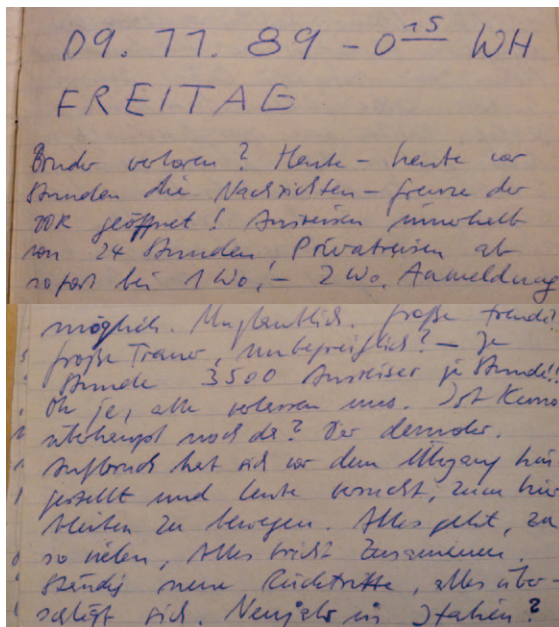 09.11.89 - 0 15 WH
FREITAG
Bruder verloren? Heute - heute vor
Stunden die Nachrichten - Grenze der
DDR geöffnet! Ausreisen innerhalb
von 24 Stunden, Privatreisen ab
sofort bei 1 Wo. - 2 Wo. Anmeldung
möglich. Unglaublich. Große Freude?
Große Trauer, unbegreiflich? - Je
Stunde 3500 Ausreiser je Stunde!!
Oh je, alle verlassen uns. Ist
überhaupt noch da? Der
Aufbruch hat sich vor dem
gestellt und Leute versucht, zum hier
bleiben zu bewegen. Alles geht, zu
so vielen, Alles bricht zusammen.
Ständig neue Rücktritte, alles über-
schlägt sich. Neujahr in Italien?